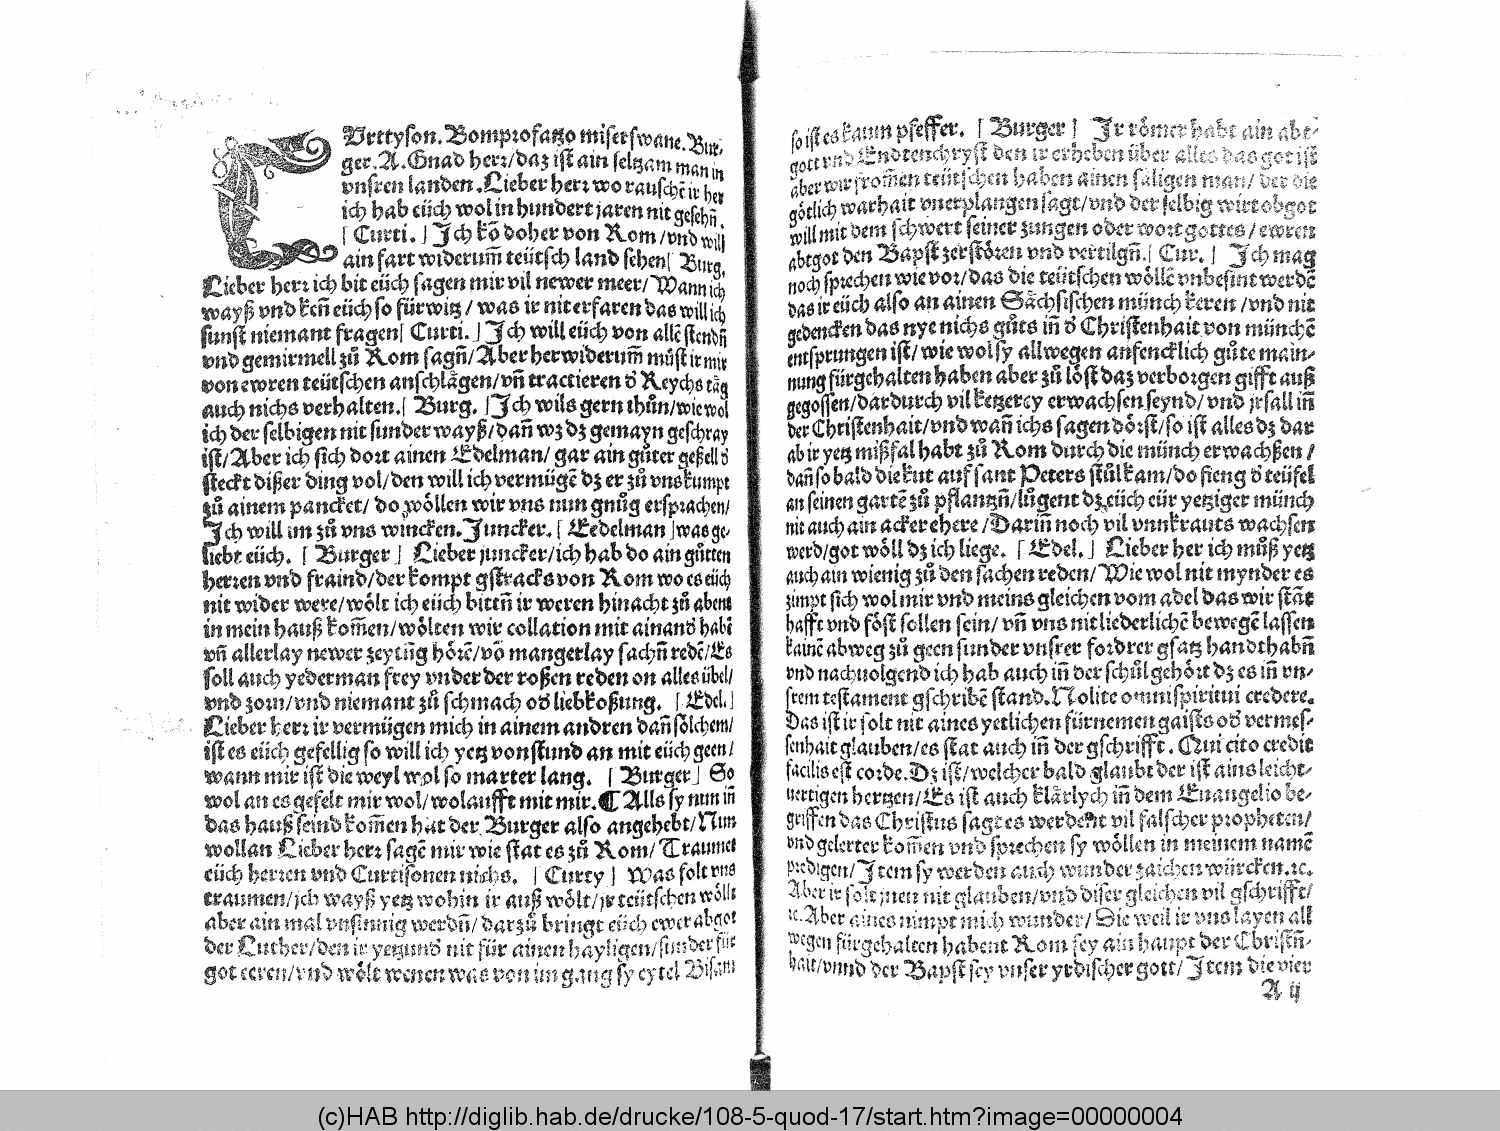 CUrttyson. Bomprosatzo miserswane. Bur,
ger. A. Gnad herꝛ/daz ist ain seltzam man in
vnsren landen. Lieber herꝛ wo rauschē ir her
ich hab eüch wol in hundert jaren nit gesehn̄.
[ Curti. ] Jch kō doher von Rom/vnd will
ain fart widerum̄ teütsch land sehen[ Burg.
Lieber herꝛ ich bit eüch sagen mir vil newer meer/Wann ich
wayß vnd ken̄ eüch so fürwitz/ was ir nit erfaren das will ich
sunst niemant fragen[ Curti. ] Jch will eüch von allē stendn̄
vnd gemirmell zů Rom sagn̄/Aber herwiderum̄ můst ir mir
von ewren teütschen anschlägen/vn̄ tractieren ď Reychs täg
auch nichs verhalten.[ Burg. ]Jch wils gern thůn/wie wol
ich der selbigen nit sunder wayß/dan̄ wz dz gemayn geschray
ist/Aber ich sich dort ainen Edelman/ gar ain gůter geßell ď
steckt dißer ding vol/den will ich vermügē dz er zů vns kumpt
zů ainem pancket/ do wöllen wir vns nun gnůg ersprachen/
Jch will im zů vns wincken. Juncker. [ Eedelman ]was ge-
liebt eüch. [ Burger ] Lieber juncker/ich hab do ain gůtten
herꝛen vnd fraind/der kompt gstracks von Rom wo es eüch
nit wider were/wölt ich eüch bittn̄ ir weren hinacht zů abent
in mein hauß kom̄en/wölten wir collation mit ainanď habē
vn̄ allerlay newer zeytn̄g hörē/vō mangerlay sachn̄ redē/Es
soll auch yederman frey vnder der roßen reden on alles übel/
vnd zorn/vnd niemant zů schmach oď liebkoßung. [ Edel.]
Lieber herꝛ ir vermügen mich in ainem andren dan̄ sölchem/
ist es eüch gefellig so will ich yetz von stund an mit eüch geen/
wann mir ist die weyl wol so marter lang. [ Burger ] So
wol an es gefelt mir wol/wolaufft mit mir. ¶ Alls sy nun in̄
das hauß seind kom̄en hat der Burger also angehebt/Nun
wollan Lieber herꝛ sagē mir wie stat es zů Rom/ Traumet
eüch herꝛen vnd Curtisonen nichs. [ Curty ] Was solt vns
traumen/ich wayß yetz wohin ir auß wölt/jr teütschen wöllt
aber ain mal vnsinnig werdn̄/darzů bringt eüch ewer abgot
der Luther/den ir yetzunď nit für ainen hayligen/sunder für
got eeren/vnd wölt wenen was von im gang sy eytel Bisam
so ist es kaum pfeffer. [ Burger ] Jr römer habt ain abt-
gott vnd Endtenchryst den ir erheben über alles das got ist
aber wir from̄en teütschen haben ainen säligen man/ der die
götlich warhait vnerplangen sagt/vnd der selbig wirt ob got
will mit dem schwert seiner zungen oder wort gottes/ ewren
abtgot den Bapst zerstören vnd vertilgn̄.[ Cur. ] Jch mag
noch sprechen wie vor/das die teütschen wöllē vnbesint werdē
das ir eüch also an ainen Sächsischen münch keren /vnd nit
gedencken das nye nichs gůts in̄ ď Christenhait von münchē
entsprungen ist/wie wol sy allwegen anfencklich gůte main-
nung fürgehalten haben aber zů löst daz verborgen gifft auß
gegossen/dardurch vil ketzerey erwachsen seynd/vnd jrsall in̄
der Christenhait/vnd wan̄ ichs sagen dörst/so ist alles dz dar
ab ir yetz mißfal habt zů Rom durch die münch erwachßen /
dan̄ so bald die kut auf sant Peters stůl kam/do fieng ď teüfel
an seinen gartē zů pflantzn̄/lůgent dz eüch eür yetziger münch
nit auch ain acker ehere /Darin̄ noch vil vnnkrauts wachsen
werd/got wöll dz ich liege. [ Edel. ] Lieber her ich můß yetz
auch ain wienig zů den sachen reden/ Wie wol nit mynder es
zimpt sich wol mir vnd meins gleichen vom adel das wir stät
hafft vnd föst sollen sein/ vn̄ vns nit liederlichē bewegē lassen
kainē abweg zů geen sunder vnsrer fordrer gsatz handthabn̄
vnd nachuolgend ich hab auch in̄ der schůl gehört dz es in̄ vn-
srem testament gschribē stand. Nolite omni spiritui credere.
Das ist ir solt nit aines yetlichen fürnemen gaists oď vermes-
senhait glauben/es stat auch in̄ der gschrifft. Qui cito credit
facilis est corde. Dz ist/welcher bald glaubt der ist ains leicht-
uertigen hertzen/Es ist auch klärlych in̄ dem Euangelio be-
griffen das Christus sagt es werdent vil falscher propheten/
vnd gelerter kom̄en vnd sprechen sy wöllen in meinem namē
predigen/Jtem sy werden auch wunder zaichen würcken.ꝛc.
Aber ir solt jnen nit glauben/vnd diser gleichen vil gschrifft/
ꝛc. Aber aines nimpt mich wunder/ Die weil ir vns layen all
wegen fürgehalten habent Rom sey ain haupt der Christn̄-
hait/vnnd der Bapst sey vnser yrdischer gott/ Jtem die vier
A ij
(c)HAB http://diglib.hab.de/drucke/108-5-quod-17/start.htm?image=00000004